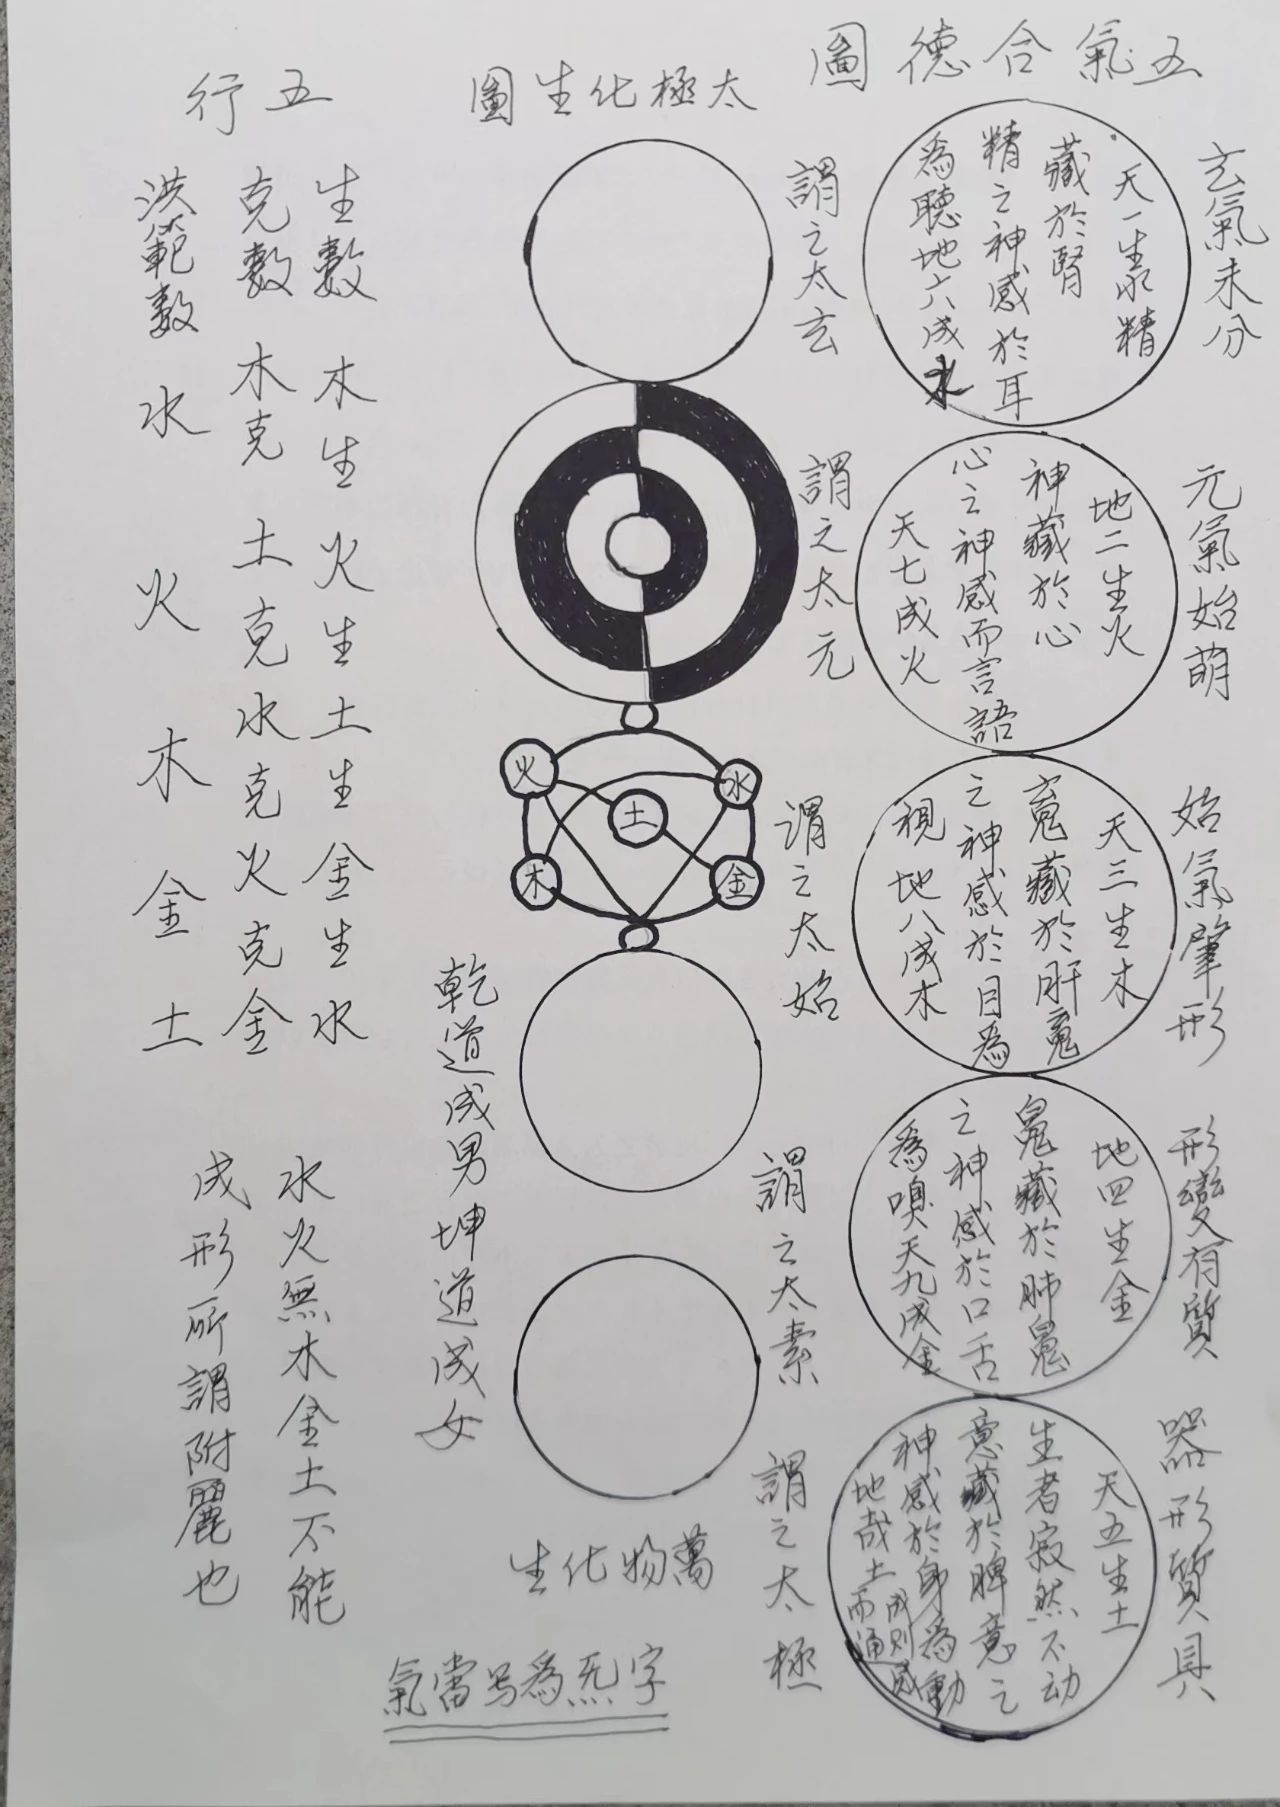 五氣合德圖
玄氣未分
天一生水精
藏於腎
精之神感於耳
為聽地六成水
元氣始萌
地二生火
神藏於心
心之神感而言語
天七成火
始氣肇形
天三生木
䰟藏於肝䰟
之神感於目為
視地八成木
形變有質
地四生金
䰟藏於肺䰟
之神感於口舌
為嗅天九成金
器形質具
天五生土
生者寂然不动
意藏於脾意之
神感於身為動
地哉土成則感
而通
太極化生圖
謂之太玄
謂之太元
謂之太始
謂之太素
謂之太極
火
水
土
木
金
乾道成男坤道成女
萬物化生
五行
生數 木生火生土生金生水
克數 木克土克水克火克金
洪範數 水火木金土
水火無木金土不能
成形所謂附麗也
氣當写為炁字